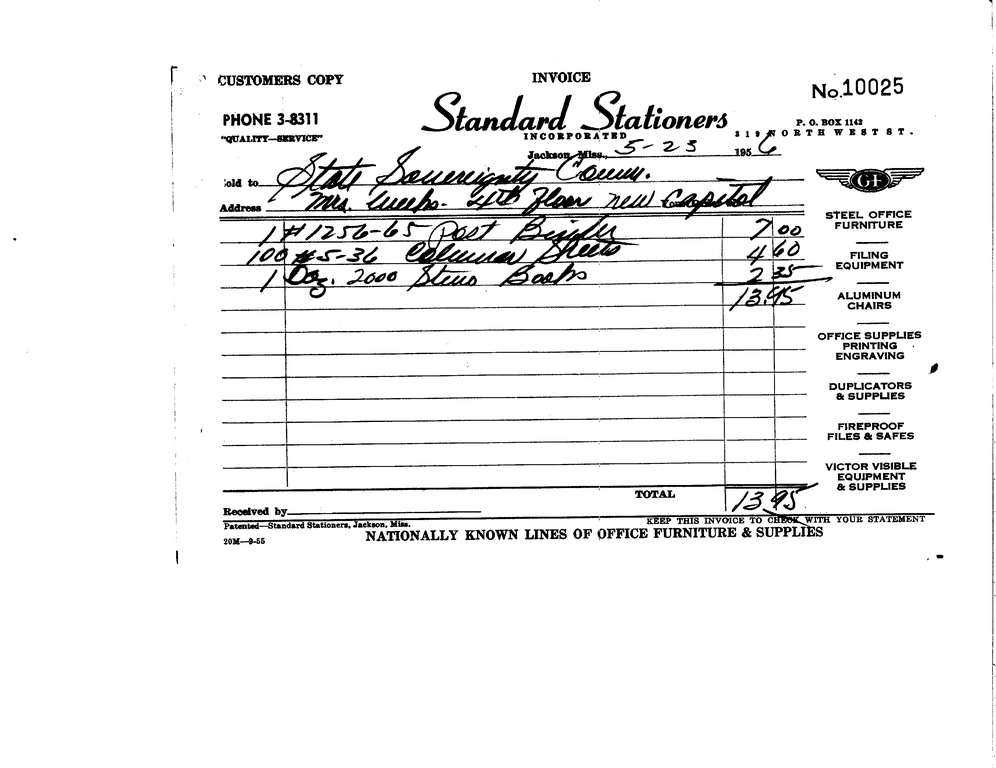 CUSTOMERS COPY
INVOICE
No. 10025
PHONE 3-8311
"QUALITY—SERVICE"
Standard Stationers
INCORPORATED
P. O. BOX 1142
319 NORTH WEST ST.
Jackson, Miss., 5-23 1956
Sold to State Sovereignty Comm.
Address Mrs. Weeks - Floor new Capitol
1 #1256-65 Post Binder 7 00
100 #5-36 Columnar Sheets 4 60
1 Doz. 2000 Steno Books 2 35
13.95
GF
STEEL OFFICE
FURNITURE
FILING
EQUIPMENT
ALUMINUM
CHAIRS
OFFICE SUPPLIES
PRINTING
ENGRAVING
DUPLICATORS
& SUPPLIES
FIREPROOF
FILES & SAFES
VICTOR VISIBLE
EQUIPMENT
& SUPPLIES
TOTAL 13.95
Received by
Patented—Standard Stationers, Jackson, Miss.
KEEP THIS INVOICE TO CHECK WITH YOUR STATEMENT
20M—9-55
NATIONALLY KNOWN LINES OF OFFICE FURNITURE & SUPPLIES